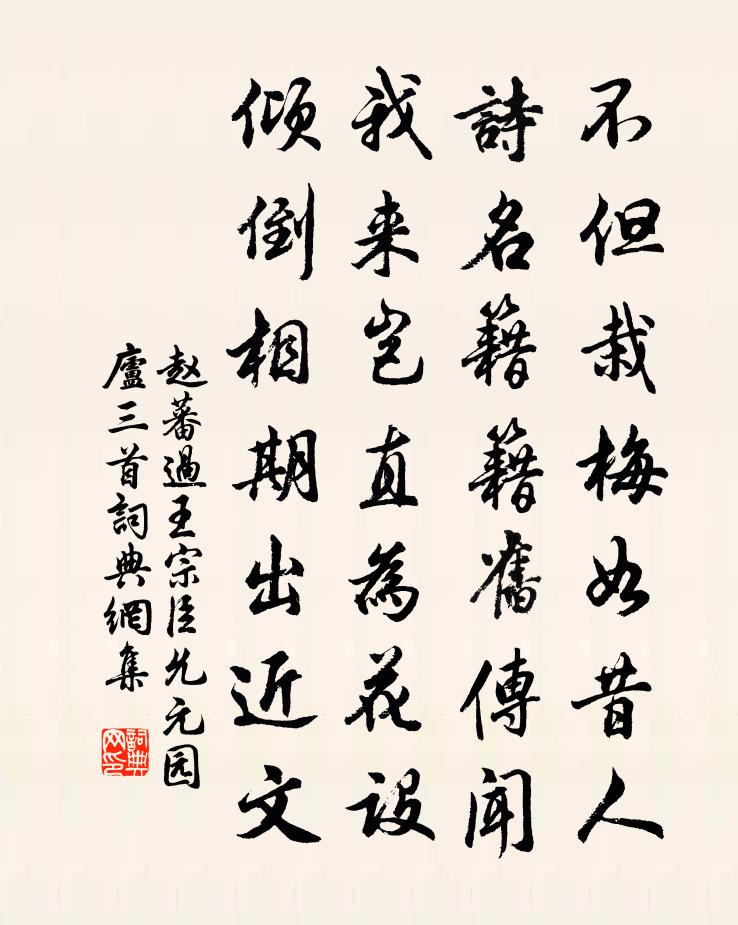 不但栽梅如昔人
詩名籍籍舊傳聞
我来豈直為花設
傾倒相期出近文
赵蕃過王宗臣允元园
廬三首詞典網集
詞典
网印